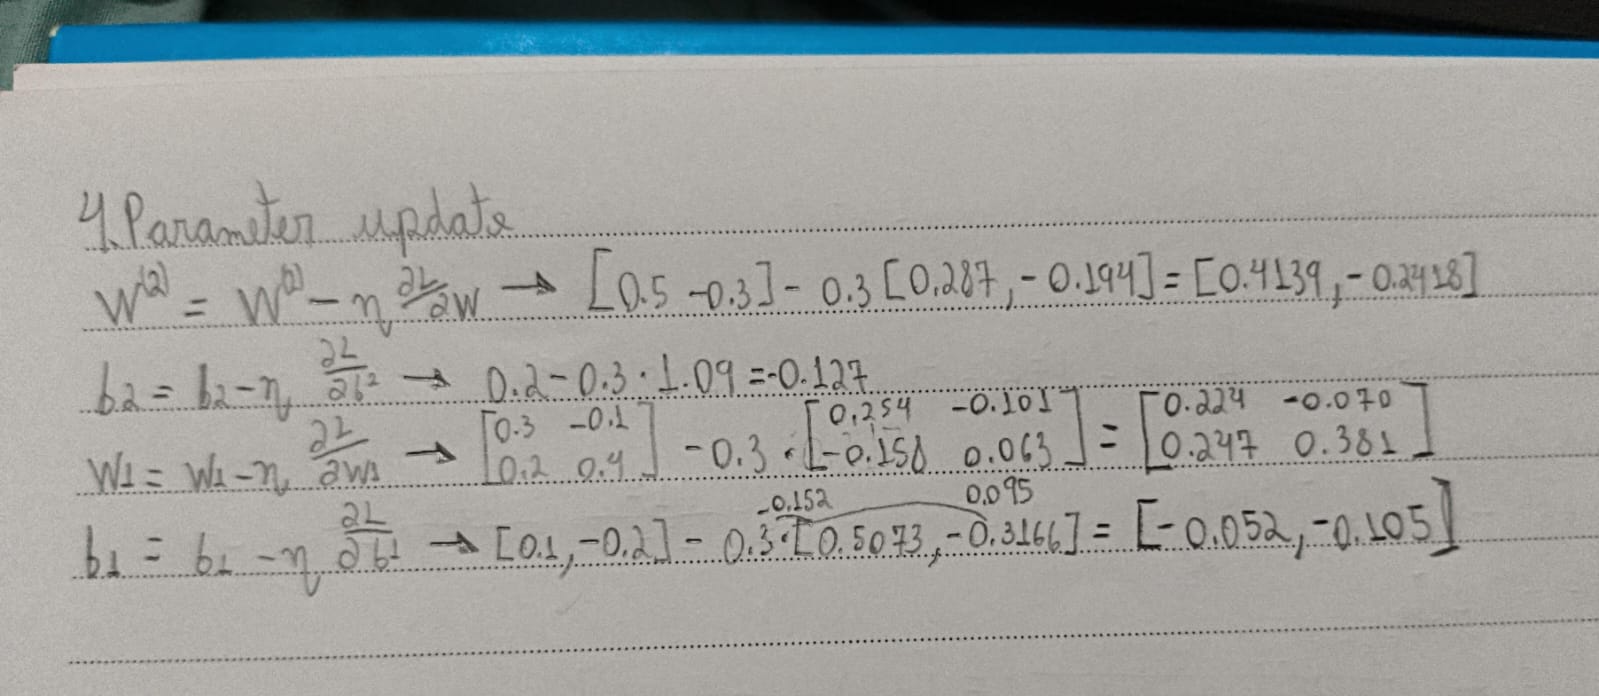 4. Parameter update
W⁽²⁾ = W⁽²⁾ - η ∂L/∂W → [0.5 -0.3] - 0.3 [0.287, -0.194] = [0.4139, -0.2418]
b2 = b2 - η ∂L/∂b² → 0.2 - 0.3 · 1.09 = -0.127
W1 = W1 - η ∂L/∂W1 → [0.3 -0.1; 0.2 0.4] - 0.3 · [0.254 -0.101; -0.158 0.063] = [0.224 -0.070; 0.247 0.381]
-0.152 0.095
b1 = b1 - η ∂L/∂b¹ → [0.1, -0.2] - 0.3 · [0.5073, -0.3166] = [-0.052, -0.105]